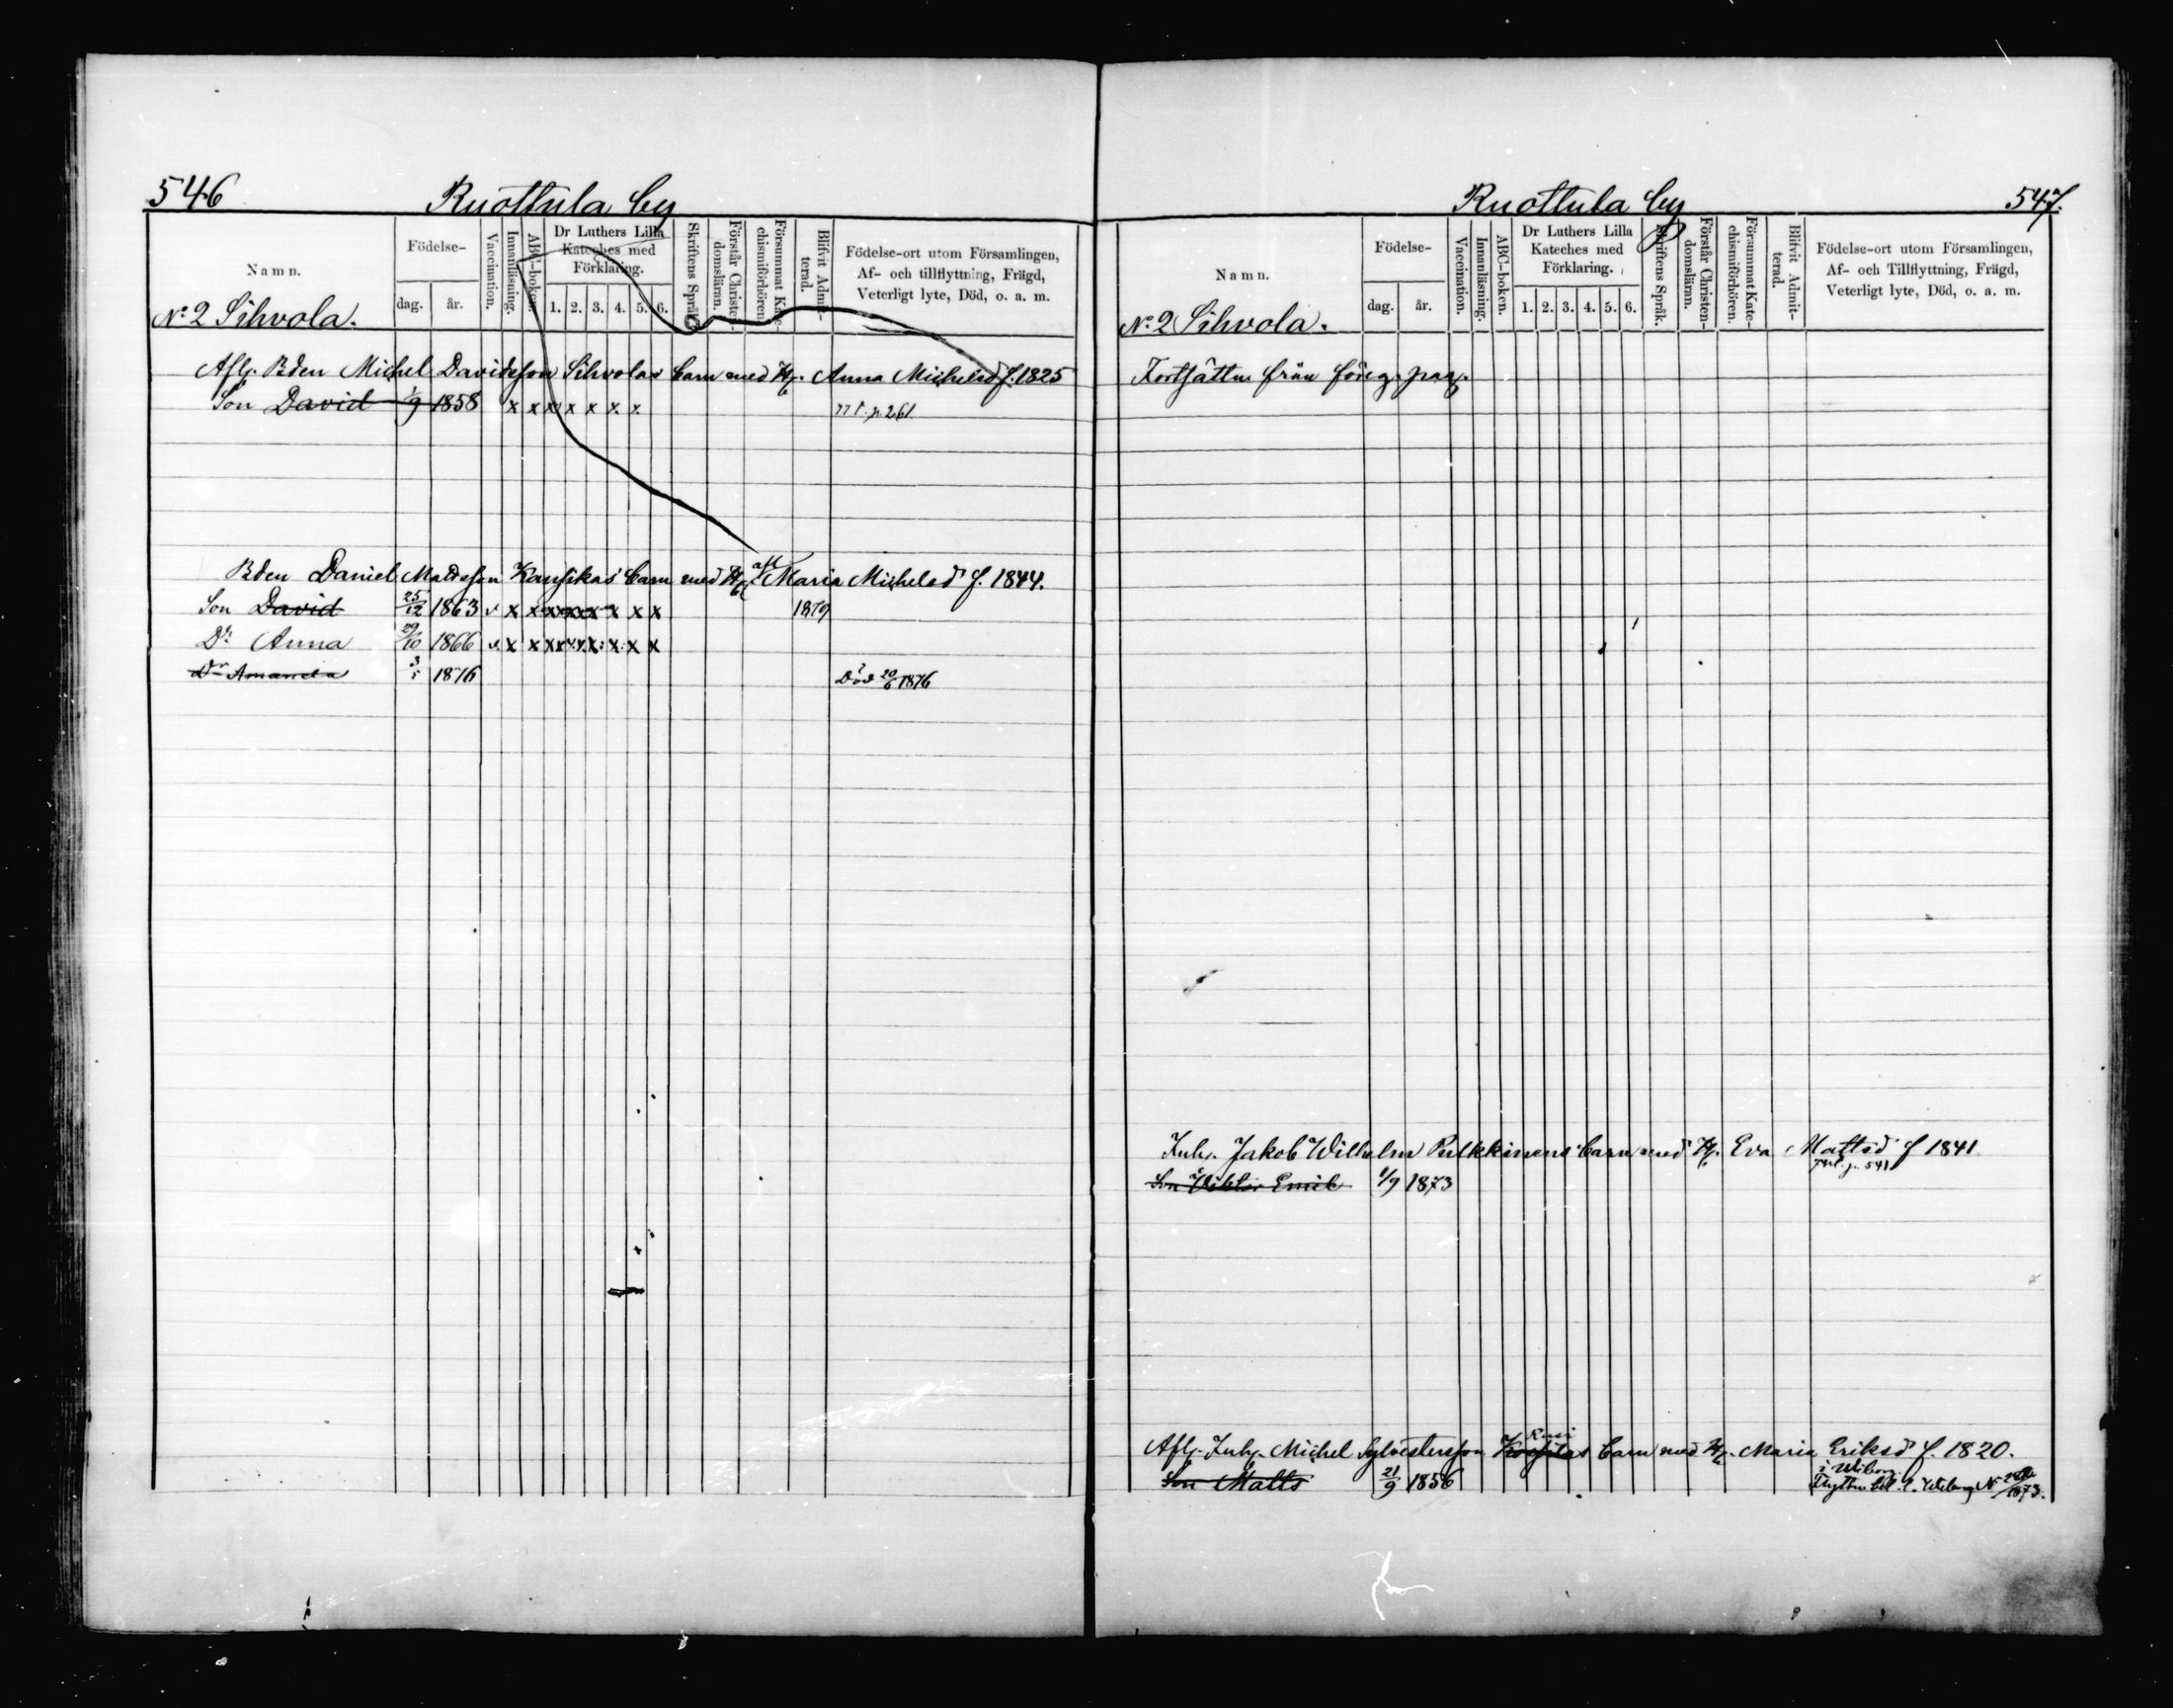 546 Ruottula by
Namn. Födelse- dag. år. Vaccination. Innanläsning. ABC-boken. Dr Luthers Lilla Kateches med Förklaring. 1. 2. 3. 4. 5. 6. Skriftens Språk. Förstår Christendomsläran. Försummat Katechismiförhören. Blifvit Admitterad. Födelse-ort utom Församlingen, Af- och tillflyttning, Frägd, Veterligt lyte, Död, o. a. m.
No 2 Sihvola.
Afl. Bden Michel Davidsson Sihvolas barn med H. Anna Michelsd f. 1825
Son David 1/9 1858 x x x x x x x p. 261.
Bden Daniel Mattsson Kansikas barn med H. Maria Michelsd f. 1844.
Son David 25/12 1863 v x x x x x x x x 1879
Dr Anna 29/10 1866 v x x x x x x x x
Dr Amanda 3/5 1876 Död 20/6 1876
Ruottula by 547.
Namn. Födelse- dag. år. Vaccination. Innanläsning. ABC-boken. Dr Luthers Lilla Kateches med Förklaring. 1. 2. 3. 4. 5. 6. Skriftens Språk. Förstår Christendomsläran. Försummat Katechismiförhören. Blifvit Admitterad. Födelse-ort utom Församlingen, Af- och Tillflyttning, Frägd, Veterligt lyte, Död, o. a. m.
No 2 Sihvola.
Fortsättn från föreg. pag.
Inh. Jakob Wilhelm Pulkkinens barn med H. Eva Mattsd f 1841
p. 541
Son Viktor Emil 1/9 1873
Afl. Inh. Michel Sylvestersson barn med H. Maria Eriksd f. 1820.
Son Matts 21/9 1856 i Wiborg
1873.